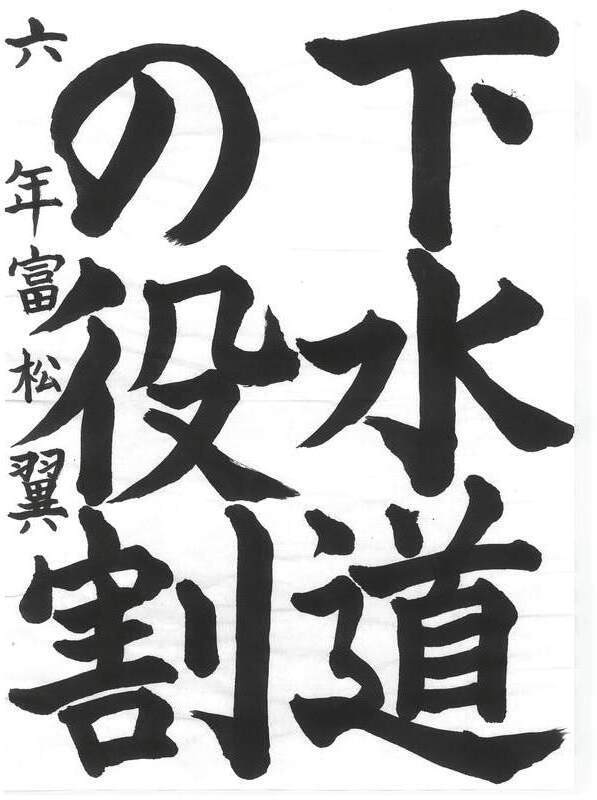 下水道
の役割
六年富松翼